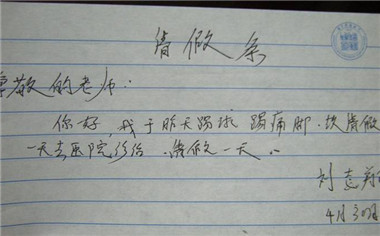 请假条
尊敬的老师:
你好,我于昨天踢球踢痛脚.故请假
一天去医院诊治.请假一天..
刘
4月30日